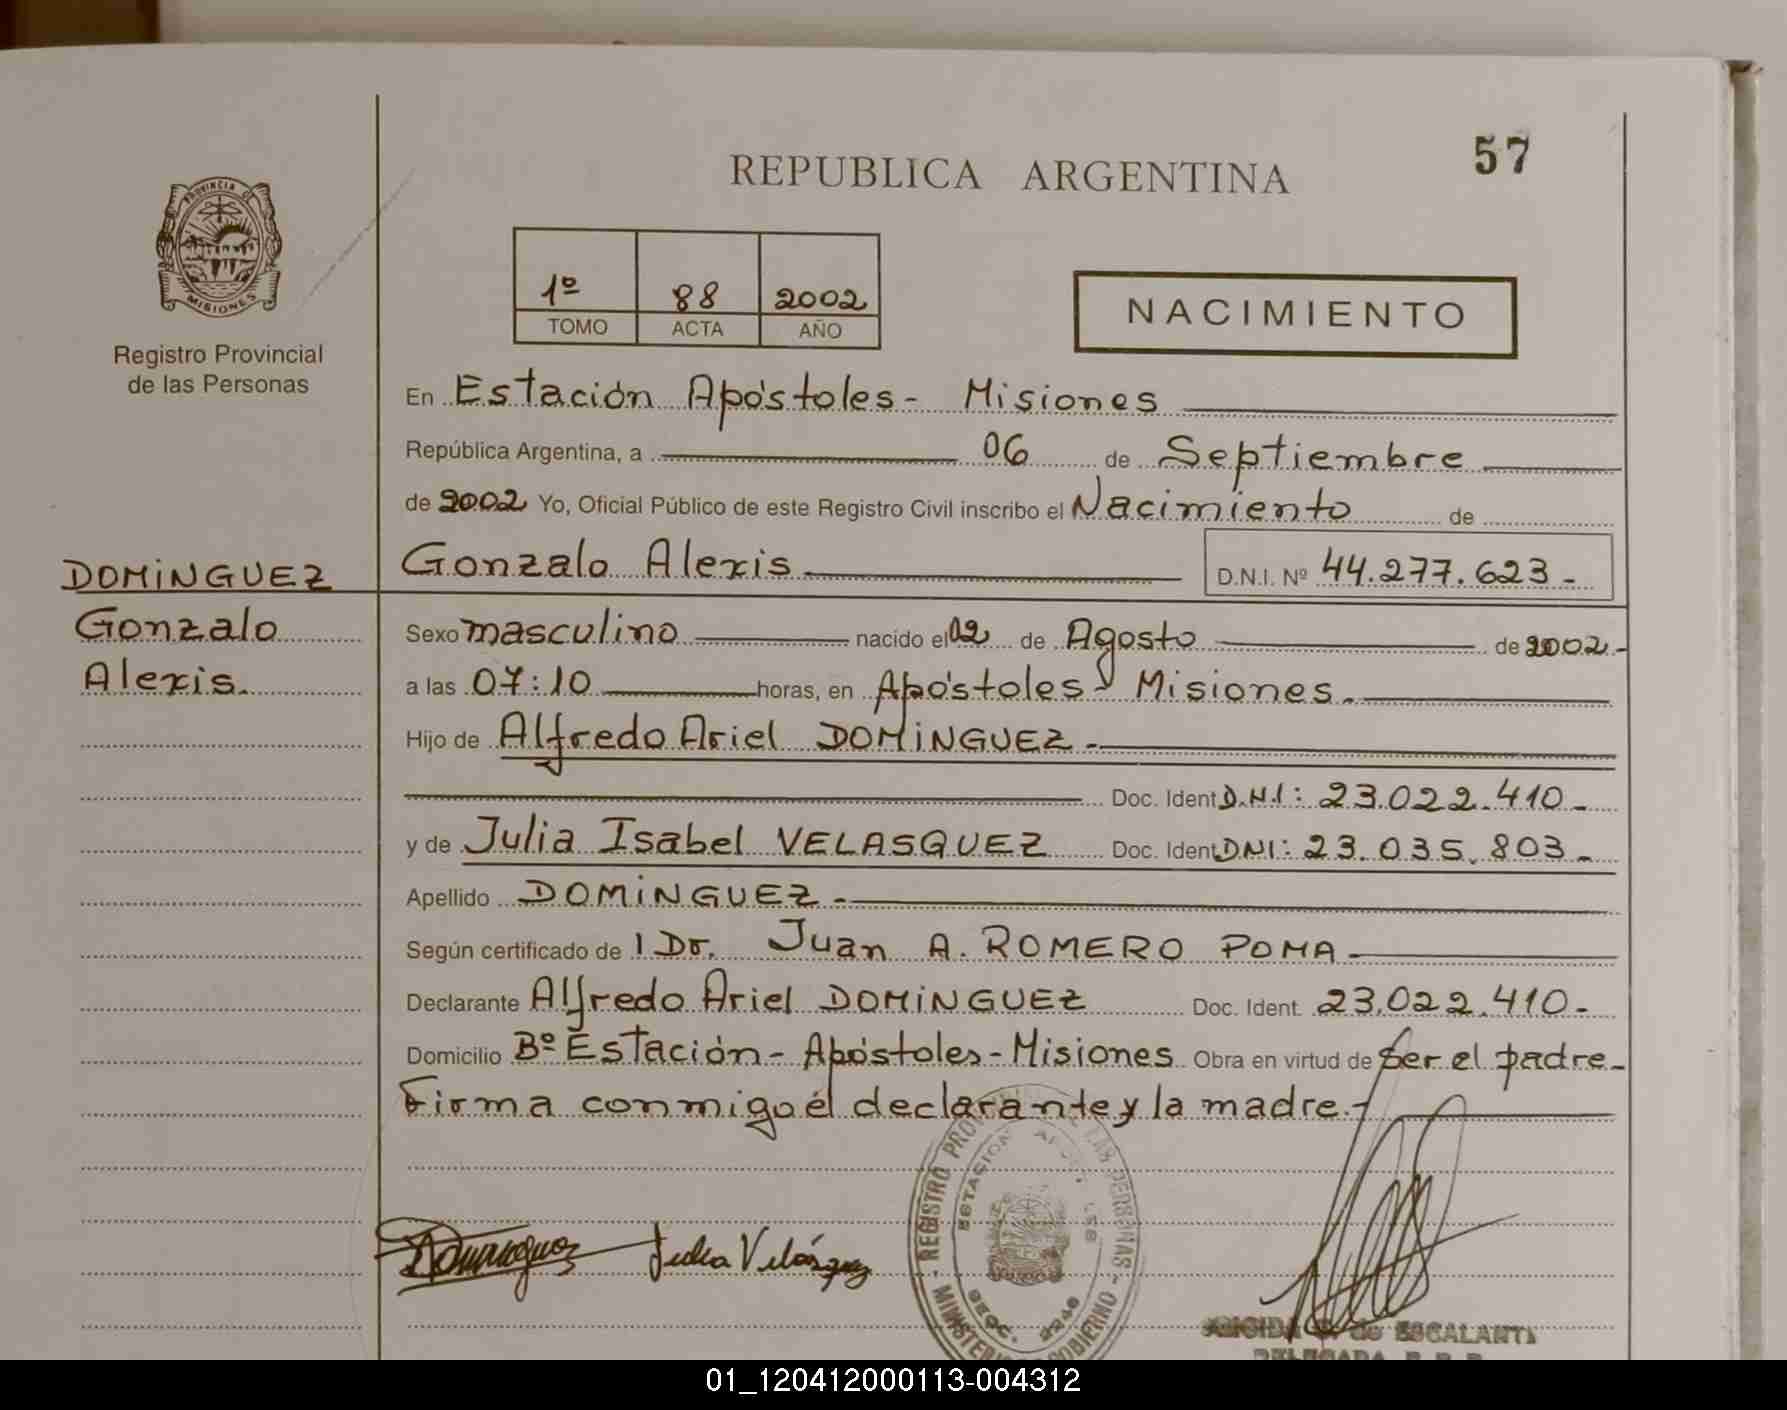 57
REPUBLICA ARGENTINA
PROVINCIA DE
MISIONES
Registro Provincial
de las Personas
1º 88 2002
TOMO ACTA AÑO
NACIMIENTO
En Estación Apóstoles - Misiones
República Argentina, a 06 de Septiembre
de 2002 Yo, Oficial Público de este Registro Civil inscribo el Nacimiento de
Gonzalo Alexis D.N.I. Nº 44.277.623 -
DOMINGUEZ
Gonzalo
Alexis.
Sexo masculino nacido el 02 de Agosto de 2002 -
a las 07:10 horas, en Apóstoles - Misiones.
Hijo de Alfredo Ariel DOMINGUEZ -
Doc. Ident D.N.I: 23.022.410 -
y de Julia Isabel VELASQUEZ Doc. Ident DNI: 23.035.803 -
Apellido DOMINGUEZ -
Según certificado de l Dr. Juan A. ROMERO POMA
Declarante Alfredo Ariel DOMINGUEZ Doc. Ident. 23.022.410 -
Domicilio Bº Estación - Apóstoles - Misiones Obra en virtud de ser el padre -
Firma conmigo él declarante y la madre. -
Dominguez Julia Velásquez
REGISTRO PROVINCIAL DE LAS PERSONAS - MINISTERIO DE GOBIERNO -
ESTACION APOSTOLES
SECC. 2246
de ESCALANTE
DELEGADA R.P.P.
01_120412000113-004312